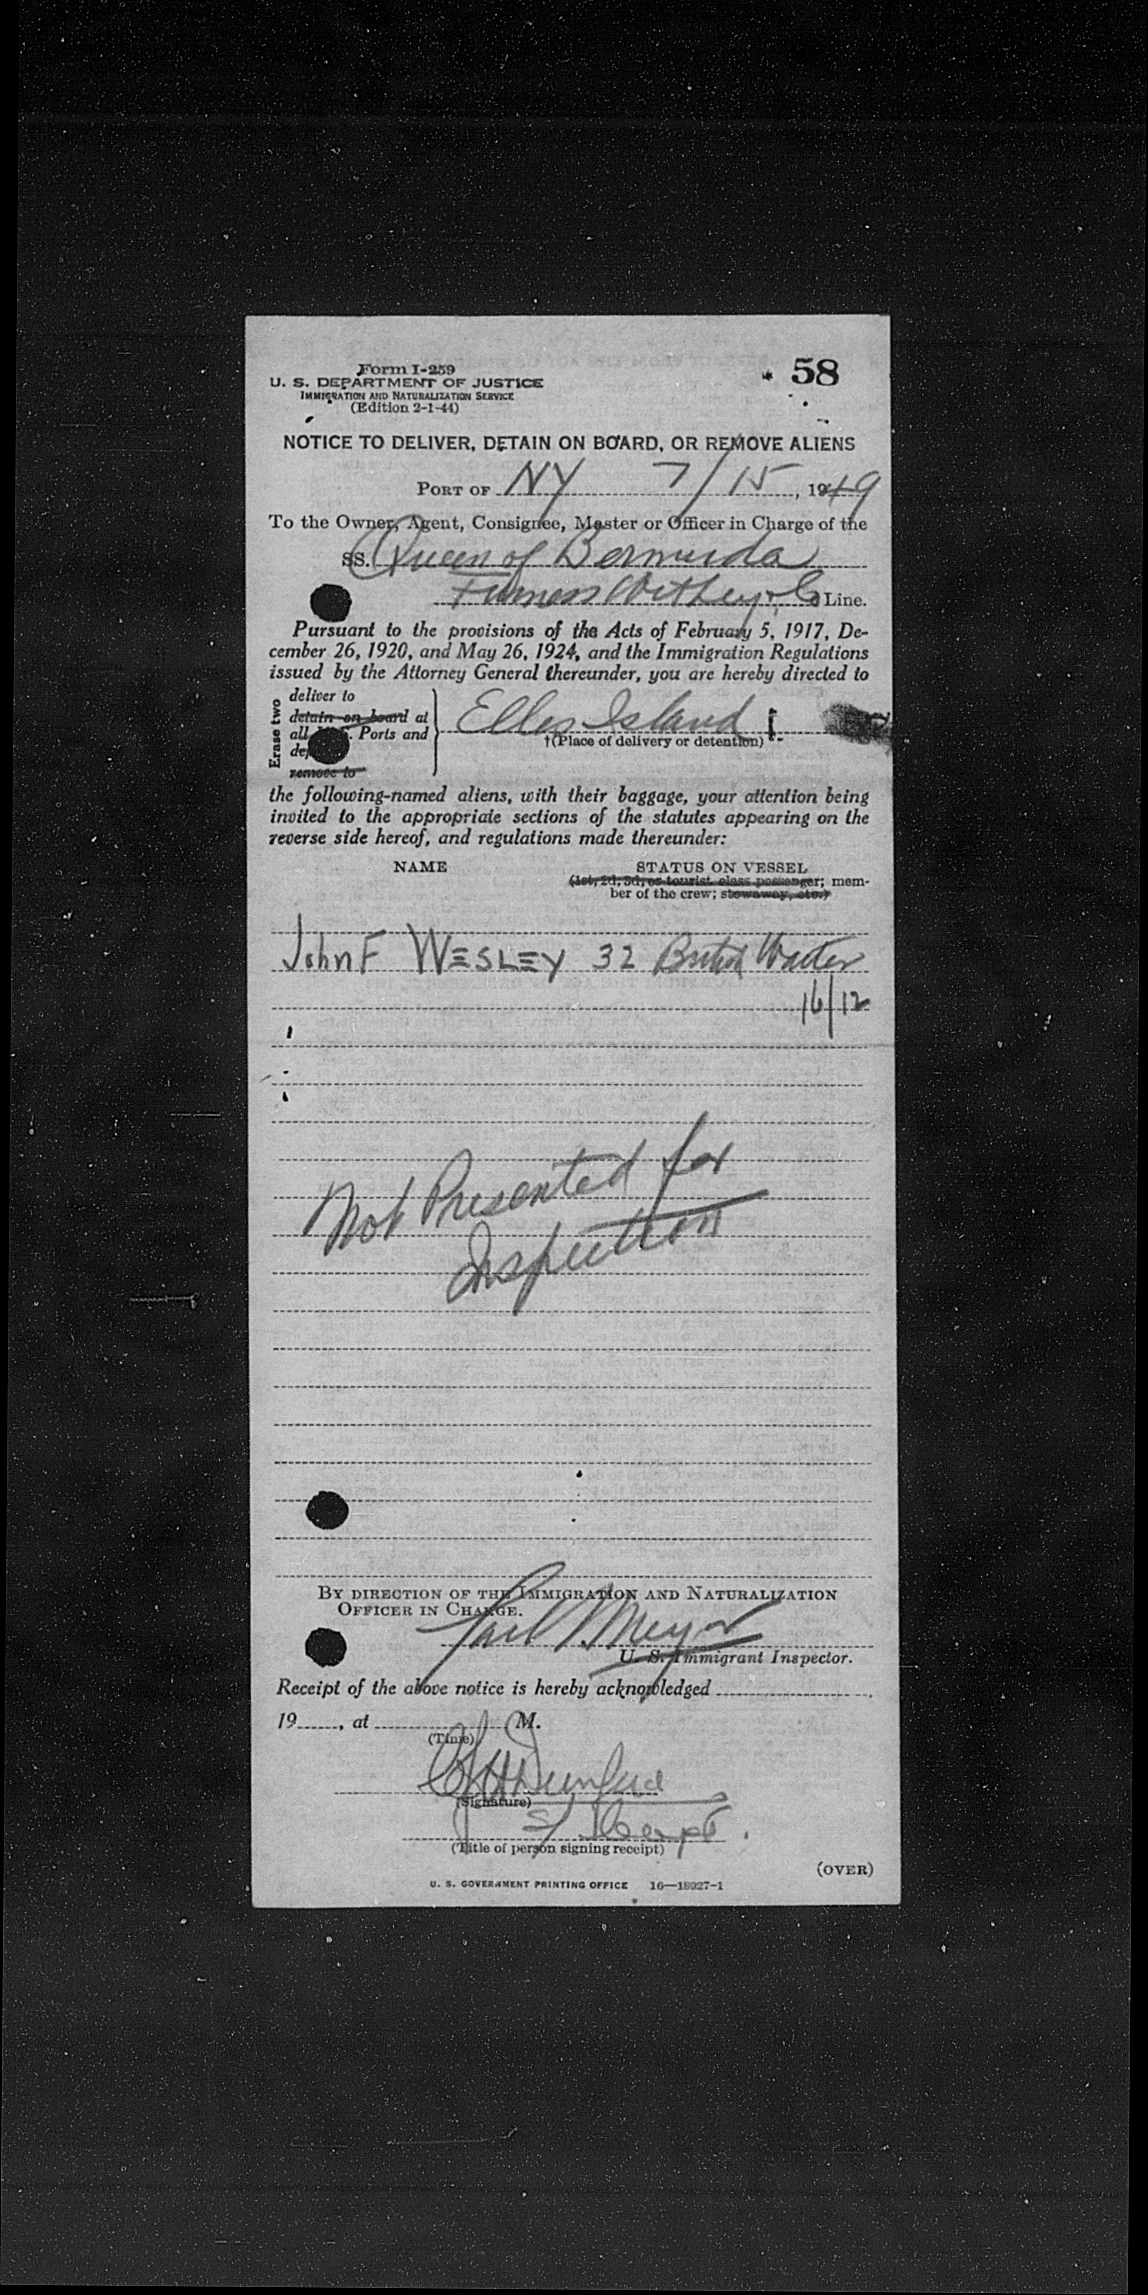 Form I-259
58
U. S. DEPARTMENT OF JUSTICE
IMMIGRATION AND NATURALIZATION SERVICE
(Edition 2-1-44)
NOTICE TO DELIVER, DETAIN ON BOARD, OR REMOVE ALIENS
PORT OF NY 7/15, 1949
To the Owner, Agent, Consignee, Master or Officer in Charge of the
SS. Queen of Bermuda
Furness Withey & Co Line.
Pursuant to the provisions of the Acts of February 5, 1917, De-
cember 26, 1920, and May 26, 1924, and the Immigration Regulations
issued by the Attorney General thereunder, you are hereby directed to
Erase two
deliver to
detain on board at
all Ports and
remove to
Ellis Island
†(Place of delivery or detention)
the following-named aliens, with their baggage, your attention being
invited to the appropriate sections of the statutes appearing on the
reverse side hereof, and regulations made thereunder:
NAME STATUS ON VESSEL
(1st, 2d, 3d, or tourist class passenger; mem-
ber of the crew; stowaway, etc.)
John F WESLEY 32 British Waiter
16/12
Not Presented for
Inspection
BY DIRECTION OF THE IMMIGRATION AND NATURALIZATION
OFFICER IN CHARGE.
Meyer
U. S. Immigrant Inspector.
Receipt of the above notice is hereby acknowledged
19......, at M.
(Time)
(Signature)
(Title of person signing receipt)
(OVER)
U. S. GOVERNMENT PRINTING OFFICE 16—18027-1